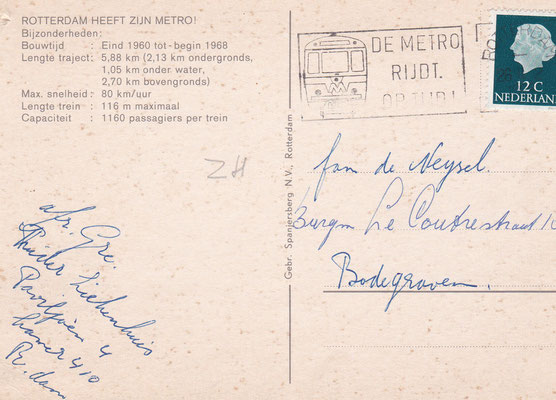 ROTTERDAM HEEFT ZIJN METRO!
Bijzonderheden:
Bouwtijd : Eind 1960 tot - begin 1968
Lengte traject : 5,88 km (2,13 km ondergronds,
1,05 km onder water,
2,70 km bovengronds)
Max. snelheid : 80 km/uur
Lengte trein : 116 m maximaal
Capaciteit : 1160 passagiers per trein
ZH
afz. Gre.
Zuider Ziekenhuis
Paviljoen 4
kamer 410
R. dam
Gebr. Spanjersberg N.V., Rotterdam
DE METRO
RIJDT.
OP TIJD!
12 C
NEDERLAND
fam de
Burgm Le Coultrestraat
Bodegraven.